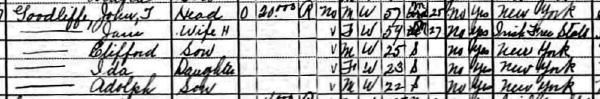 7 Goodliffe, John, T Head O 20.000 R No M W 57 M 25 No Yes New York
— Jane Wife H V F W 54 M 27 No Yes Irish Free State
— Clifford Son V M W 25 S No Yes New York
— Ida Daughter V F W 23 S No Yes New York
— Adolph Son V M W 22 S No Yes New York